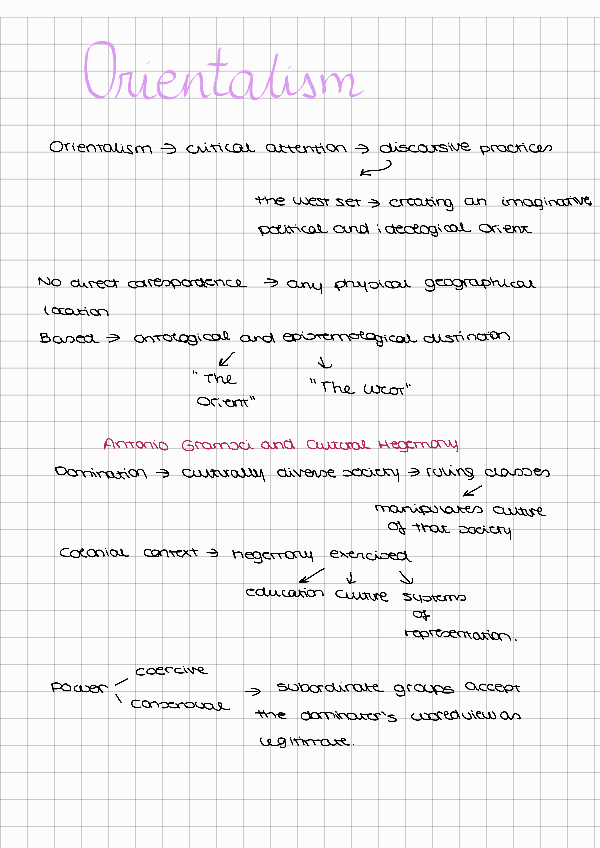 Orientalism
Orientalism → critical attention → discursive practices
the West set → creating an imaginative
political and ideological Orient
No direct correspondence → any physical geographical
location
Based → ontological and epistemological distinction
"The Orient" "The West"
Antonio Gramsci and Cultural Hegemony
Domination → culturally diverse society → ruling classes
manipulates culture
of that society
Colonial context → hegemony exercised
education culture systems
of
representation.
coercive
Power → subordinate groups accept
consensual
the dominater's worldview as
legitimate.